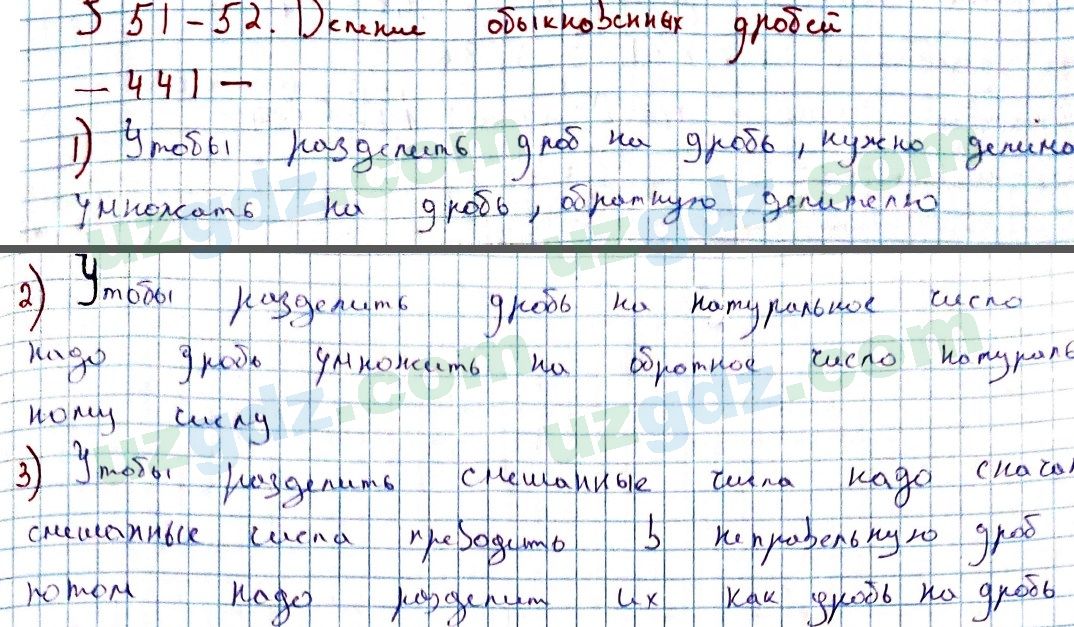 § 51-52. Деление обыкновенных дробей
- 441 -
1) Чтобы разделить дроб на дробь, нужно делимо
умножать на дробь, обратную делителю
2) Чтобы разделить дробь на натуральное число
надо дробь умножить на обратное число натураль
ному числу
3) Чтобы разделить смешанные числа надо снача
смешанные числа преводить в неправельную дроб
потом надо разделит их как дробь на дробь
uzgdz.com
uzgdz.com
uzgdz.com
uzgdz.com